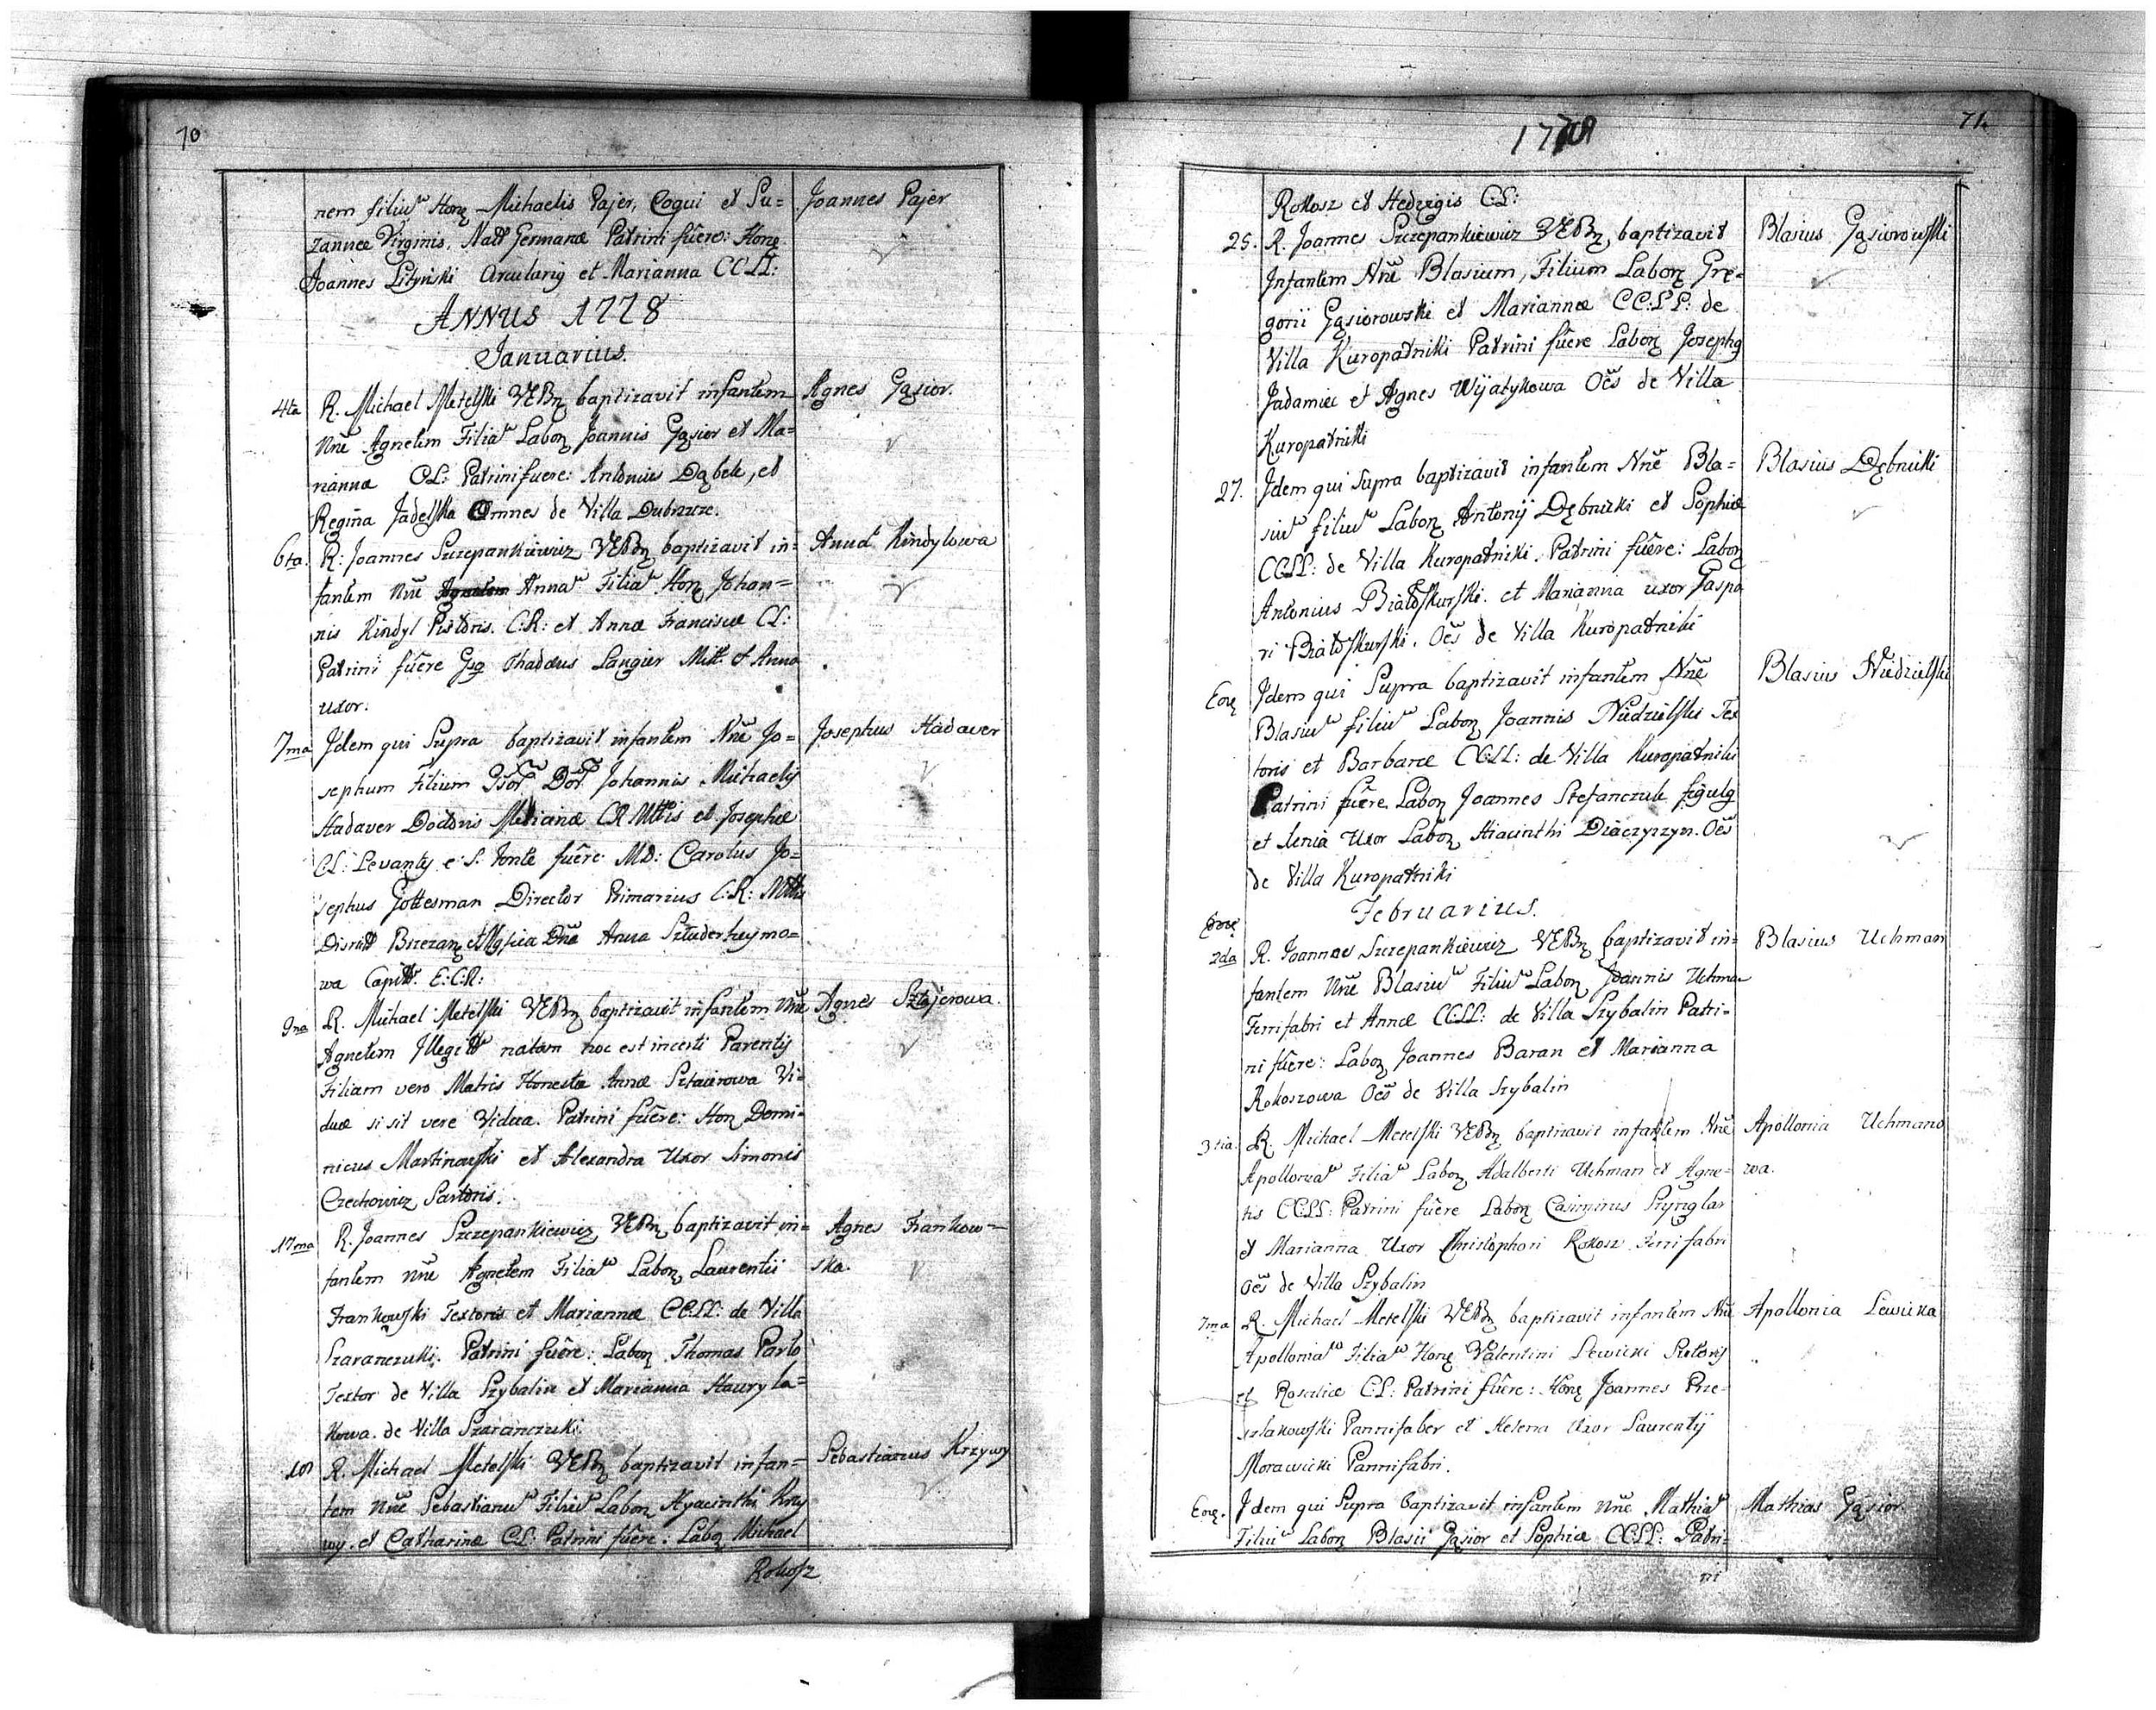 70
nem filiū Hon Michaelis Pajer, Coqui et Su=
zannæ Virginis, Natt Germanæ Patrini fuêre: Hong
Joannes Lityński Arcularig et Marianna CCLL:
Joannes Pajer
ANNUS 1778
Januarius.
4ta R. Michael Metelski VEBn baptizavit infantem
Nnē Agnetem Filiā Labon Joannis Gąsior et Ma=
rianna CL: Patrini fuere: Antonius Dąbek, et
Regina Jadelska Omnes de Villa Dubszcze.
Agnes Gąsior.
6ta. R: Joannes Szczepankiewicz VEBn baptizavit in=
fantem Nnē Annā Filiā Hon Johan=
nis Kindyl Pistoris. C:R: et Annæ Franciscæ CL:
Patrini fuêre Gsg Thadæus Langier Mitt. et Anna
uxor.
Anna Kindylowa
7ma Jdem qui Supra baptizavit infantem Nnē Jo=
sephum Filium Johannis Michaelis
Hadaver Doctoris Medicinæ CR Mttis et Josephæ
C:L: Levantes e S: Fonte fuêre MD: Carolus Jo=
sephus Gottesman Director Primarius C:R: Mttis
Distritt Brzezan et Dnā Anna Sztuderheymo=
wa Capitt. E:C:R:
Josephus Hadaver
9na R. Michael Metelski VEBn baptizavit infantem Nnē
Agnetem Illegitt natam hoc est incerti Parentis
Filiam vero Matris Honestæ Annæ Sztaierowa Vi=
duæ si sit vere Vidua. Patrini fuêre: Hon Domi=
nicus Martinowski et Alexandra Uxor Simonis
Czechowicz Sartoris.
Agnes Sztajerowa.
17ma R. Joannes Szczepankiewicz VEBn baptizavit in=
fantem Nnē Agnetem Filiā Labon Laurentii
Frankowski Textoris et Mariannæ CCLL: de Villa
Szaranczuki. Patrini fuêre: Labon Thomas Parlo
Textor de Villa Szybalin et Marianna Hauryla=
kowa. de Villa Szaranczuki
Agnes Frankow=
ska.
R. Michael Metelski VEBn baptizavit infan=
tem Nnē Sebastianū Filiū Labon Hyacinthi Krzy
wy. et Catharinæ CL: Patrini fuêre: Labo Michael
Rokosz
Sebastianus Krzywy
1778
71.
Rokosz et Hedvigis C:L:
25. R. Joannes Szczepankiewicz VEBn, baptizavit
Infantem Nnē Blasium, Filium Labon Gre=
gorii Gąsiorowski et Mariannæ CC:LL: de
Villa Kuropatniki Patrini fuêre Labon Josephg
Jadamiec et Agnes Wijatykowa Oēs de Villa
Kuropatniki
Blasius Gąsiorowski
27. Jdem qui Supra baptizavit infantem Nnē Bla=
siū filiū Labon Antonij Dębnicki et Sophiæ
CCLL: de Villa Kuropatniki. Patrini fuêre: Labon
Antonius Białoskurski. et Marianna uxor Gaspa
ri Białoskurski. Oēs de Villa Kuropatniki
Blasius Dębnicki
Jdem qui Supra baptizavit infantem Nnē
Blasiū filiū Labon Joannis Niedzielski Tex
toris et Barbaræ CCLL: de Villa Kuropatniki
Patrini fuêre Labon Joannes Stefanczuk figulg
et Xenia Uxor Labon Hiacinthi Diaczyszyn. Oēs
de Villa Kuropatniki
Blasius Niedzielski
Februarius.
2da R. Joannes Szczepankiewicz VEBn baptizavit in=
fantem Nnē Blasiū Filiū Labon Joannis Uchman
Ferrifabri et Annæ CCLL: de Villa Szybalin Patri=
ni fuêre: Labon Joannes Baran et Marianna
Rokoszowa Oēs de Villa Szybalin
Blasius Uchman
3tia. R. Michael Metelski VEBn baptizavit infantem Nnē
Apolloniā Filiā Labon Adalberti Uchman et Agne=
tis CCLL: Patrini fuêre Labon Casimirus Szynglar
et Marianna Uxor Christophori Rokosz Ferrifabri
Oēs de Villa Szybalin
Apollonia Uchmano
wa.
7ma R. Michael Metelski VEBn baptizavit infantem Nnē
Apolloniā Filiā Hong Valentini Lewicki Sutoris
et Rosaliæ C:L: Patrini fuêre: Hong Joannes Prze=
szlakowski Pannifaber et Helena Uxor Laurentij
Morawicki Pannifabri.
Apollonia Lewicka
Jdem qui Supra baptizavit infantem Nnē Mathiā
Filiū Labon Blasii Gąsior et Sophiæ CCLL: Patri=
ni
Mathias Gąsior